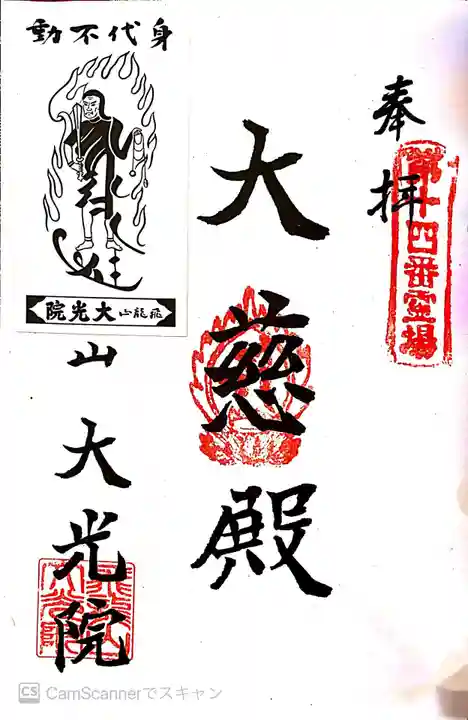 奉拝
第十四番霊場
大慈殿
身代不動
飛龍山大光院
山大光院
飛龍山大光院
CS CamScannerでスキャン